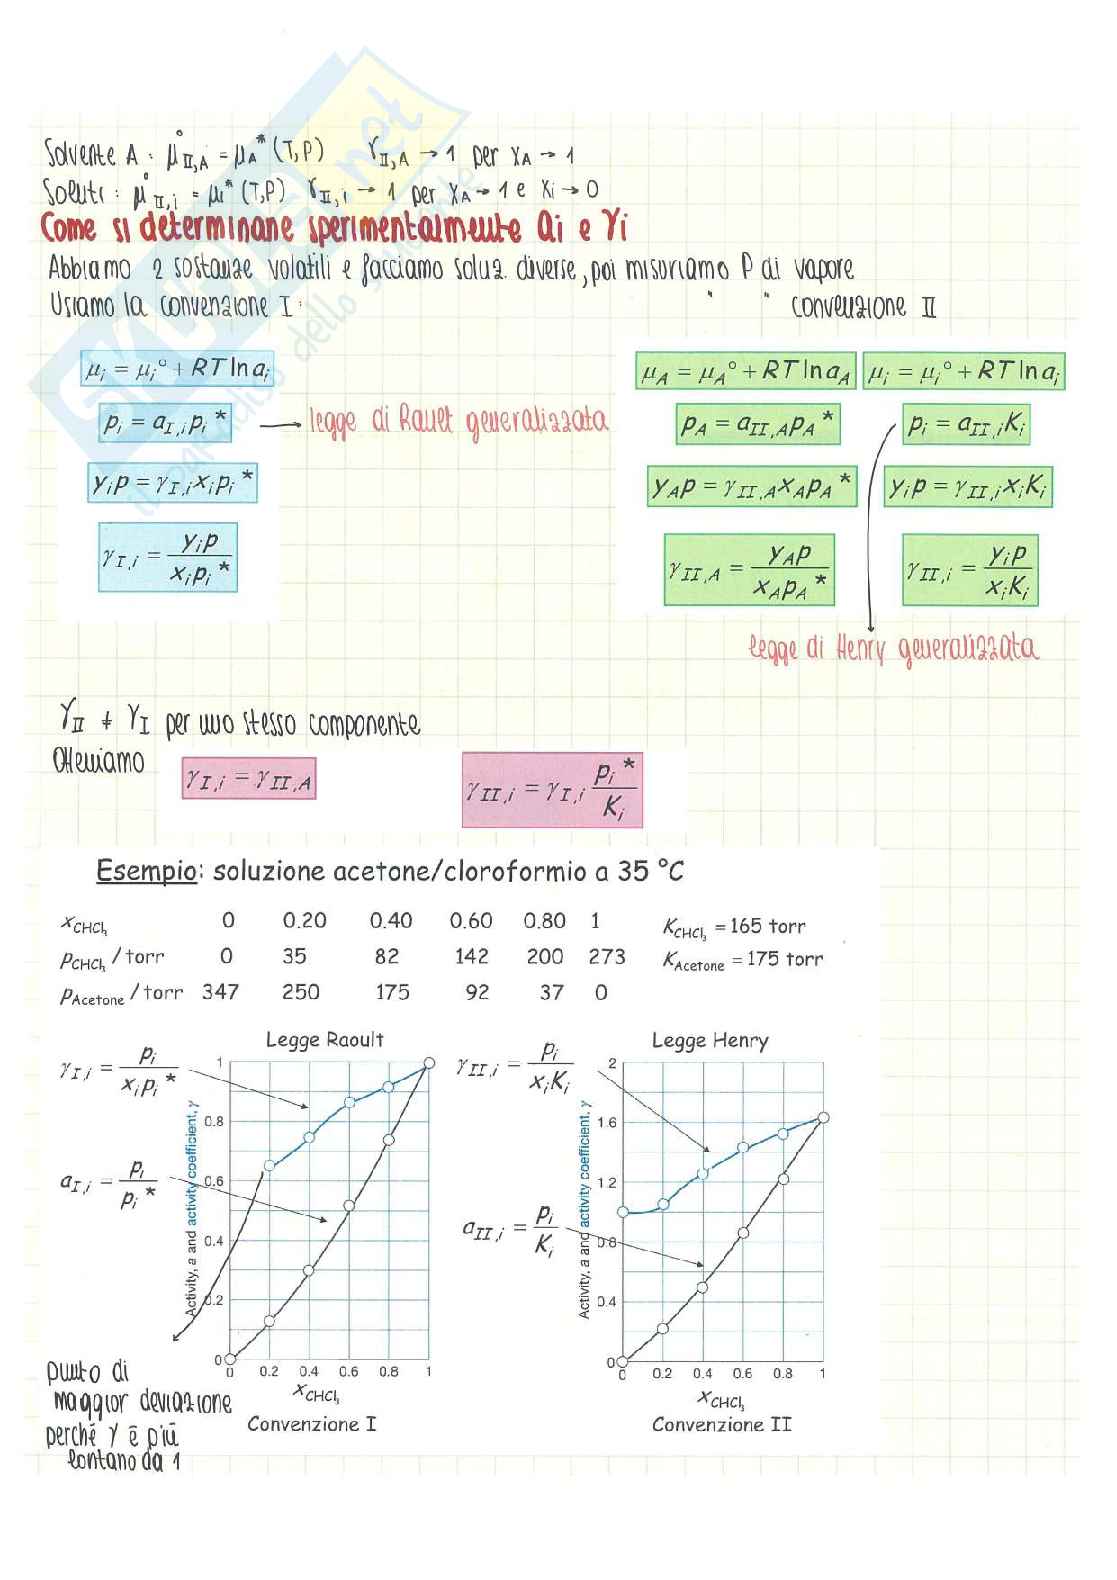 Solvente A : μ°II,A = μA*(T,P)   γII,A → 1 per xA → 1
Soluti : μ°II,i = μi*(T,P)   γII,i → 1 per xA → 1 e xi → 0
Come si determinane sperimentalmente ai e γi
Abbiamo 2 sostanze volatili e facciamo soluz. diverse, poi misuriamo P di vapore
Usiamo la convenzione I :   " " convenzione II
μi = μi° + RT ln ai
pi = aI,i pi* → legge di Rault generalizzata
yi p = γI,i xi pi*
γI,i = yi p / xi pi*
μA = μA° + RT ln aA   μi = μi° + RT ln ai
pA = aII,A pA*   pi = aII,i Ki
yA p = γII,A xA pA*   yi p = γII,i xi Ki
γII,A = yA p / xA pA*   γII,i = yi p / xi Ki
legge di Henry generalizzata
γII ≠ γI per uno stesso componente
Otteniamo   γI,i = γII,A   γII,i = γI,i pi* / Ki
Esempio: soluzione acetone/cloroformio a 35 °C
xCHCl3   0   0.20   0.40   0.60   0.80   1   KCHCl3 = 165 torr
pCHCl3 / torr   0   35   82   142   200   273   KAcetone = 175 torr
pAcetone / torr   347   250   175   92   37   0
Legge Raoult
γI,i = pi / xi pi*
aI,i = pi / pi*
Activity, a and activity coefficient, γ
1
0.8
0.6
0.4
0.2
0
0   0.2   0.4   0.6   0.8   1
xCHCl3
Convenzione I
Legge Henry
γII,i = pi / xi Ki
aII,i = pi / Ki
Activity, a and activity coefficient, γ
2
1.6
1.2
0.8
0.4
0
0   0.2   0.4   0.6   0.8   1
xCHCl3
Convenzione II
punto di
maggior deviazione
perché γ è più
lontano da 1